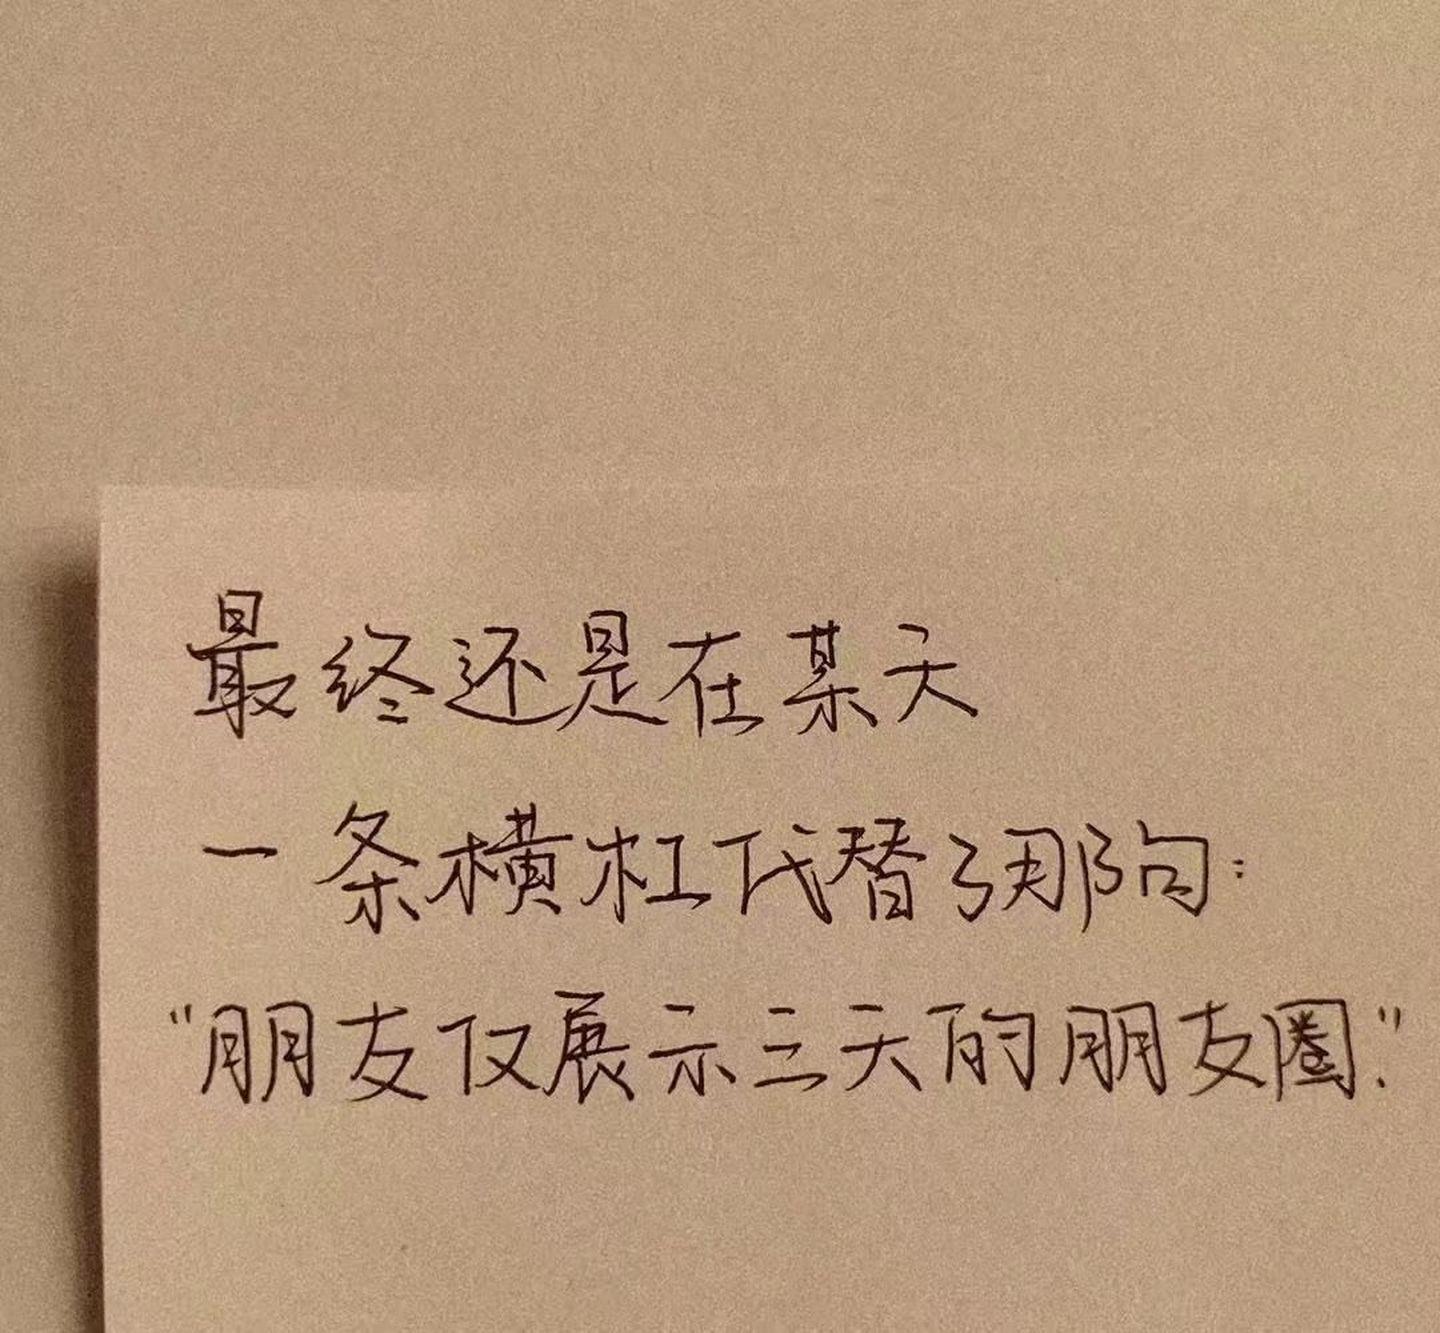 最终还是在某天
一条横杠代替了那句:
“朋友仅展示三天的朋友圈.”